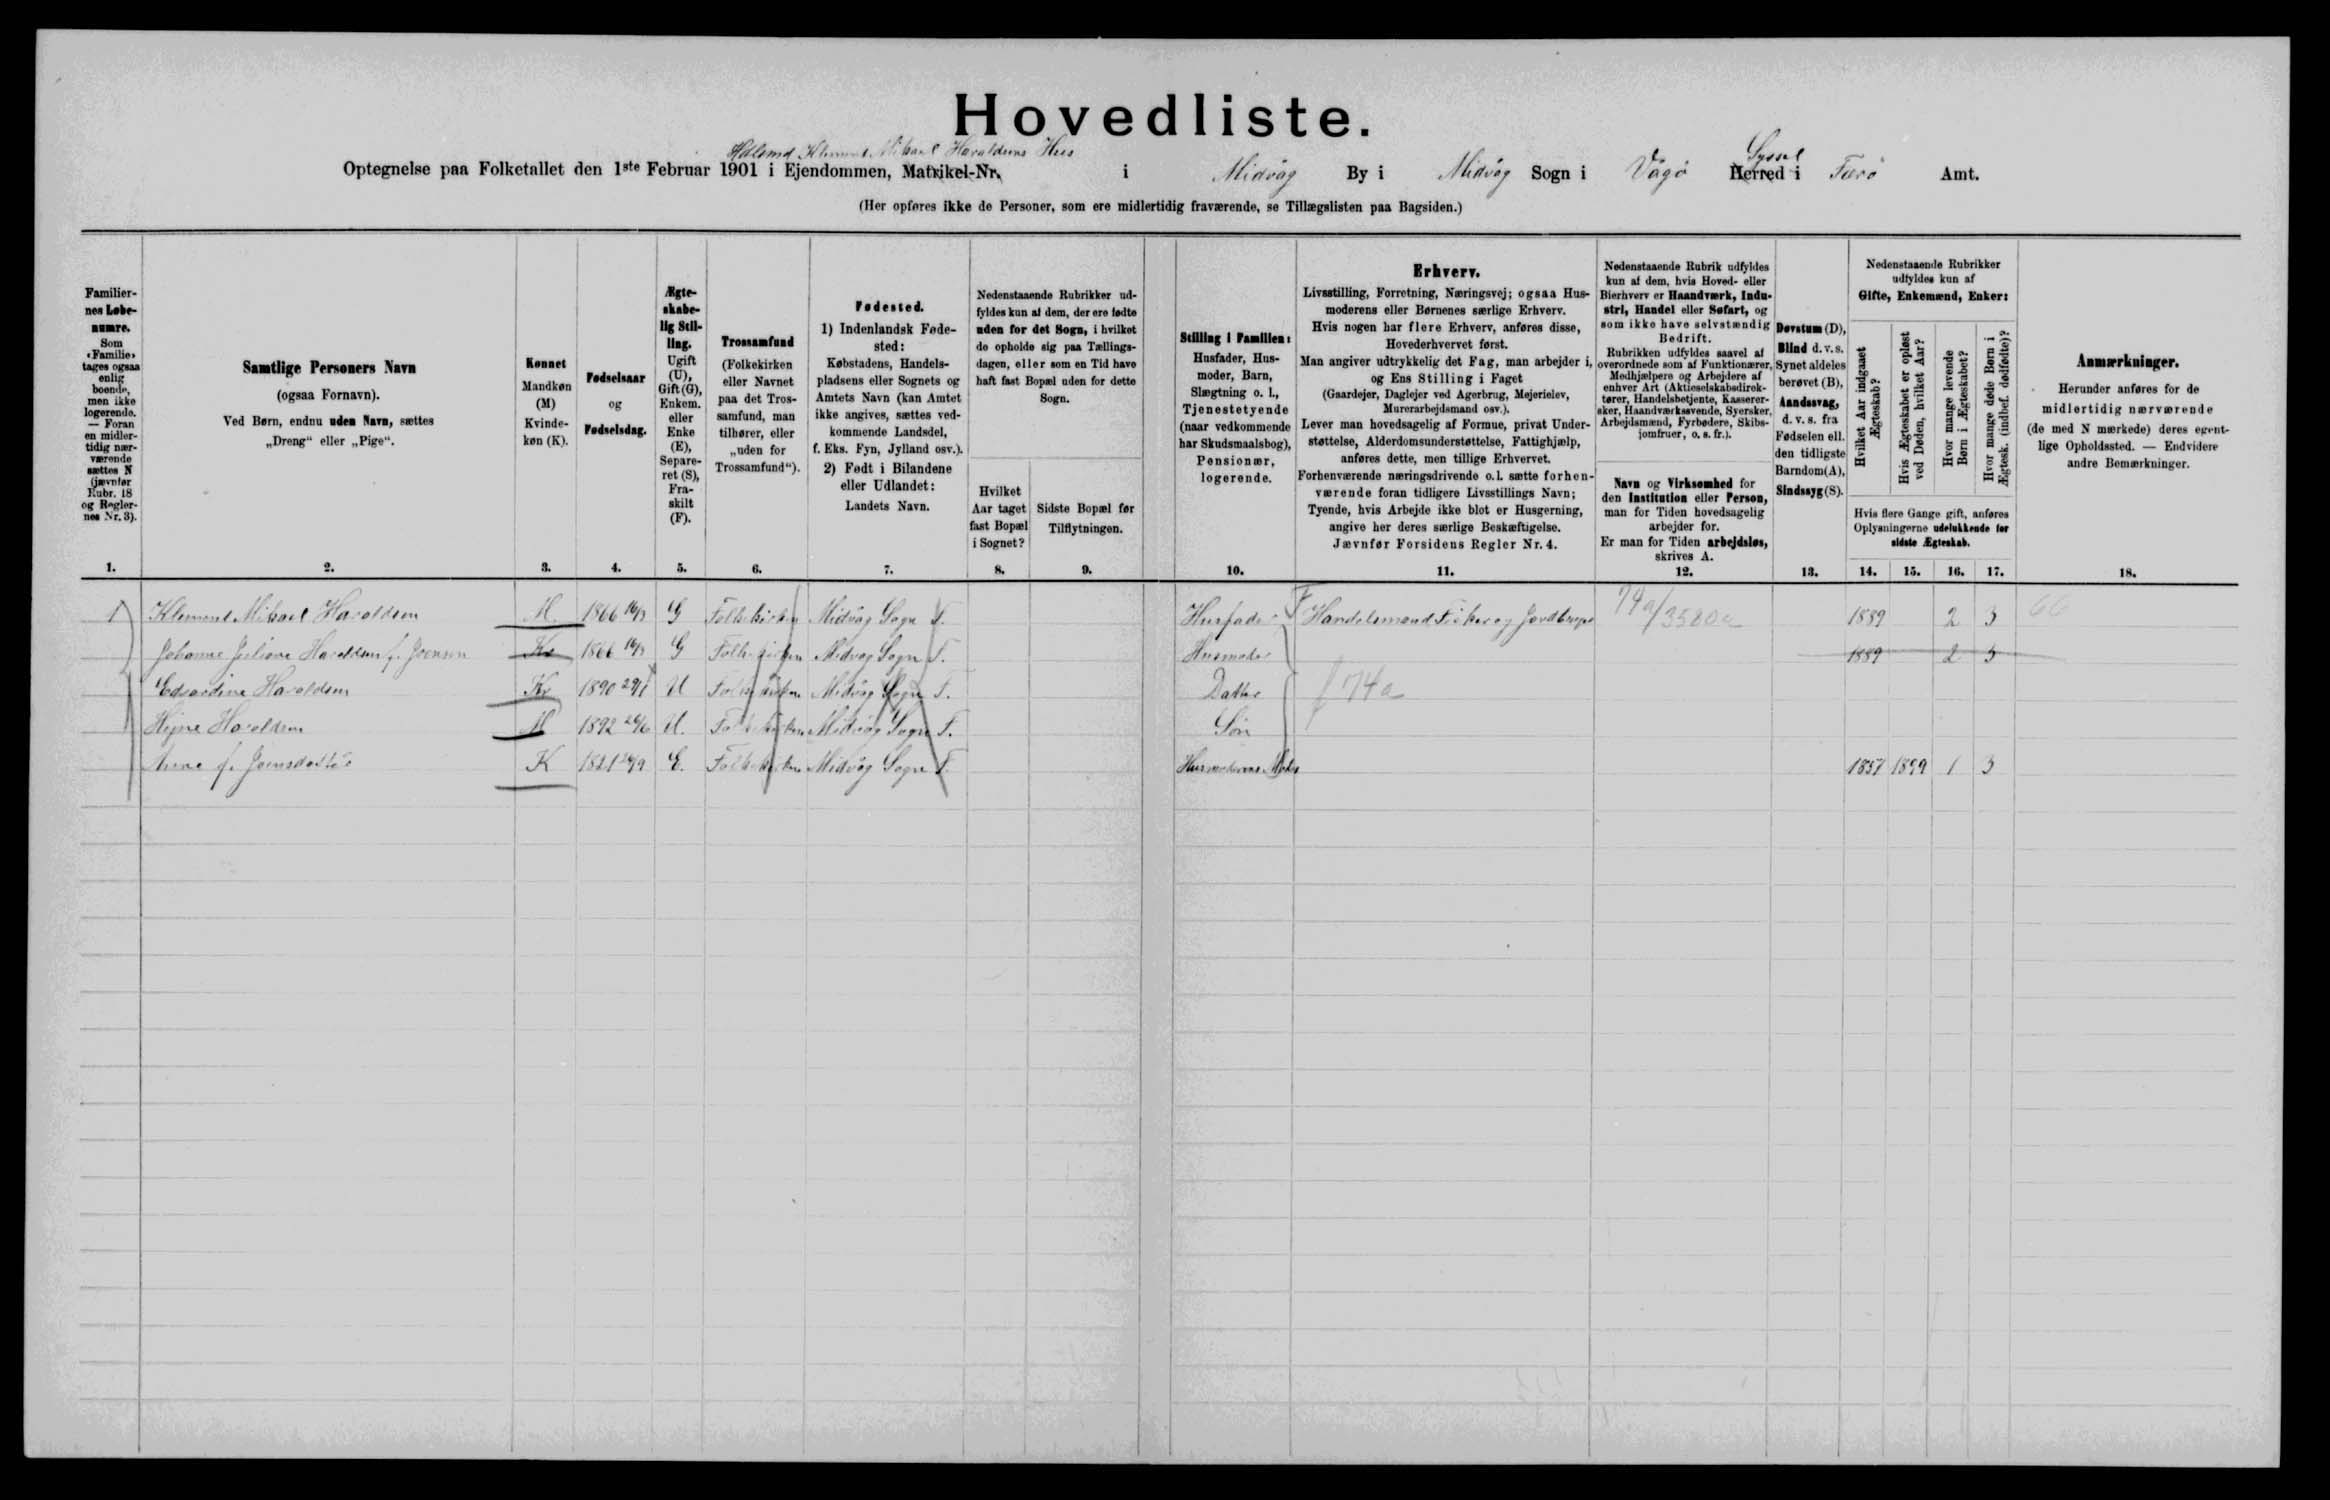 Hovedliste.
Hdlsmd Klement Mikael Haraldsens Hus
Syssel
Optegnelse paa Folketallet den 1ste Februar 1901 i Ejendommen, Matrikel-Nr. i Midvåg By i Midvåg Sogn i Vågø Herred i Færø Amt.
(Her opføres ikke de Personer, som ere midlertidig fraværende, se Tillægslisten paa Bagsiden.)
Familiernes Løbenumre.
Som
«Familie»
tages ogsaa
enlig
boende,
men ikke
logerende.
— Foran
en midler-
tidig nær-
værende
sættes N
(jævnfør
Rubr. 18
og Regler-
nes Nr. 3).
Samtlige Personers Navn
(ogsaa Fornavn).
Ved Børn, endnu uden Navn, sættes
„Dreng“ eller „Pige“.
Kønnet
Mandkøn
(M)
Kvinde-
køn (K).
Fødselsaar
og
Fødselsdag.
Ægte-
skabe-
lig Stil-
ling.
Ugift
(U),
Gift (G),
Enkem.
eller
Enke
(E),
Separe-
ret (S),
Fra-
skilt
(F).
Trossamfund
(Folkekirken
eller Navnet
paa det Tros-
samfund, man
tilhører, eller
„uden for
Trossamfund“).
Fødested.
1) Indenlandsk Føde-
sted:
Købstadens, Handels-
pladsens eller Sognets og
Amtets Navn (kan Amtet
ikke angives, sættes ved-
kommende Landsdel,
f. Eks. Fyn, Jylland osv.).
2) Født i Bilandene
eller Udlandet:
Landets Navn.
Nedenstaaende Rubrikker ud-
fyldes kun af dem, der ere fødte
uden for det Sogn, i hvilket
de opholde sig paa Tællings-
dagen, eller som en Tid have
haft fast Bopæl uden for dette
Sogn.
Hvilket
Aar taget
fast Bopæl
i Sognet?
Sidste Bopæl før
Tilflytningen.
Stilling i Familien:
Husfader, Hus-
moder, Barn,
Slægtning o. l.,
Tjenestetyende
(naar vedkommende
har Skudsmaalsbog),
Pensionær,
logerende.
Erhverv.
Livsstilling, Forretning, Næringsvej; ogsaa Hus-
moderens eller Børnenes særlige Erhverv.
Hvis nogen har flere Erhverv, anføres disse,
Hovederhvervet først.
Man angiver udtrykkelig det Fag, man arbejder i,
og Ens Stilling i Faget
(Gaardejer, Daglejer ved Agerbrug, Mejerielev,
Murerarbejdsmand osv.).
Lever man hovedsagelig af Formue, privat Under-
støttelse, Alderdomsunderstøttelse, Fattighjælp,
anføres dette, men tillige Erhvervet.
Forhenværende næringsdrivende o. l. sætte forhen-
værende foran tidligere Livsstillings Navn;
Tyende, hvis Arbejde ikke blot er Husgerning,
angive her deres særlige Beskæftigelse.
Jævnfør Forsidens Regler Nr. 4.
Nedenstaaende Rubrik udfyldes
kun af dem, hvis Hoved- eller
Bierhverv er Haandværk, Indu-
stri, Handel eller Søfart, og
som ikke have selvstændig
Bedrift.
Rubrikken udfyldes saavel af
overordnede som af Funktionærer,
Medhjælpere og Arbejdere af
enhver Art (Aktieselskabsdirek-
tører, Handelsbetjente, Kasserer-
sker, Haandværkssvende, Syersker,
Arbejdsmænd, Fyrbødere, Skibs-
jomfruer, o. s. fr.).
Navn og Virksomhed for
den Institution eller Person,
man for Tiden hovedsagelig
arbejder for.
Er man for Tiden arbejdsløs,
skrives A.
Døvstum (D),
Blind d. v. s.
Synet aldeles
berøvet (B),
Aandssvag,
d. v. s. fra
Fødselen ell.
den tidligste
Barndom (A),
Sindssyg (S).
Nedenstaaende Rubrikker
udfyldes kun af
Gifte, Enkemænd, Enker:
Hvilket Aar indgaaet
Ægteskab?
Hvis Ægteskabet er opløst
ved Døden, hvilket Aar?
Hvor mange levende
Børn i Ægteskabet?
Hvor mange døde Børn i
Ægtesk. (indbef. dødfødte)?
Hvis flere Gange gift, anføres
Oplysningerne udelukkende for
sidste Ægteskab.
Anmærkninger.
Herunder anføres for de
midlertidig nærværende
(de med N mærkede) deres egent-
lige Opholdssted. — Endvidere
andre Bemærkninger.
1. 2. 3. 4. 5. 6. 7. 8. 9. 10. 11. 12. 13. 14. 15. 16. 17. 18.
1 Klement Mikael Haraldsen M. 1866 G Folkekirken Midvåg Sogn F. Husfader Handelsmand Fisker og Jordbruger 74a/3580a 1889 2 3 66
Johanne Juliane Haraldsen f. Joensen 1866 G Folkekirken Midvåg Sogn F. Husmoder 1889 2 3
Edvardine Haraldsen 1890 U Folkekirken Midvåg Sogn F. Datter 74a
Hejne Haraldsen M 1892 U. Folkekirken Midvåg Sogn F. Søn
Anne f. Joensdatter K 1821 E. Folkekirken Midvåg Sogn F. Husmoderens Moder 1857 1899 1 3